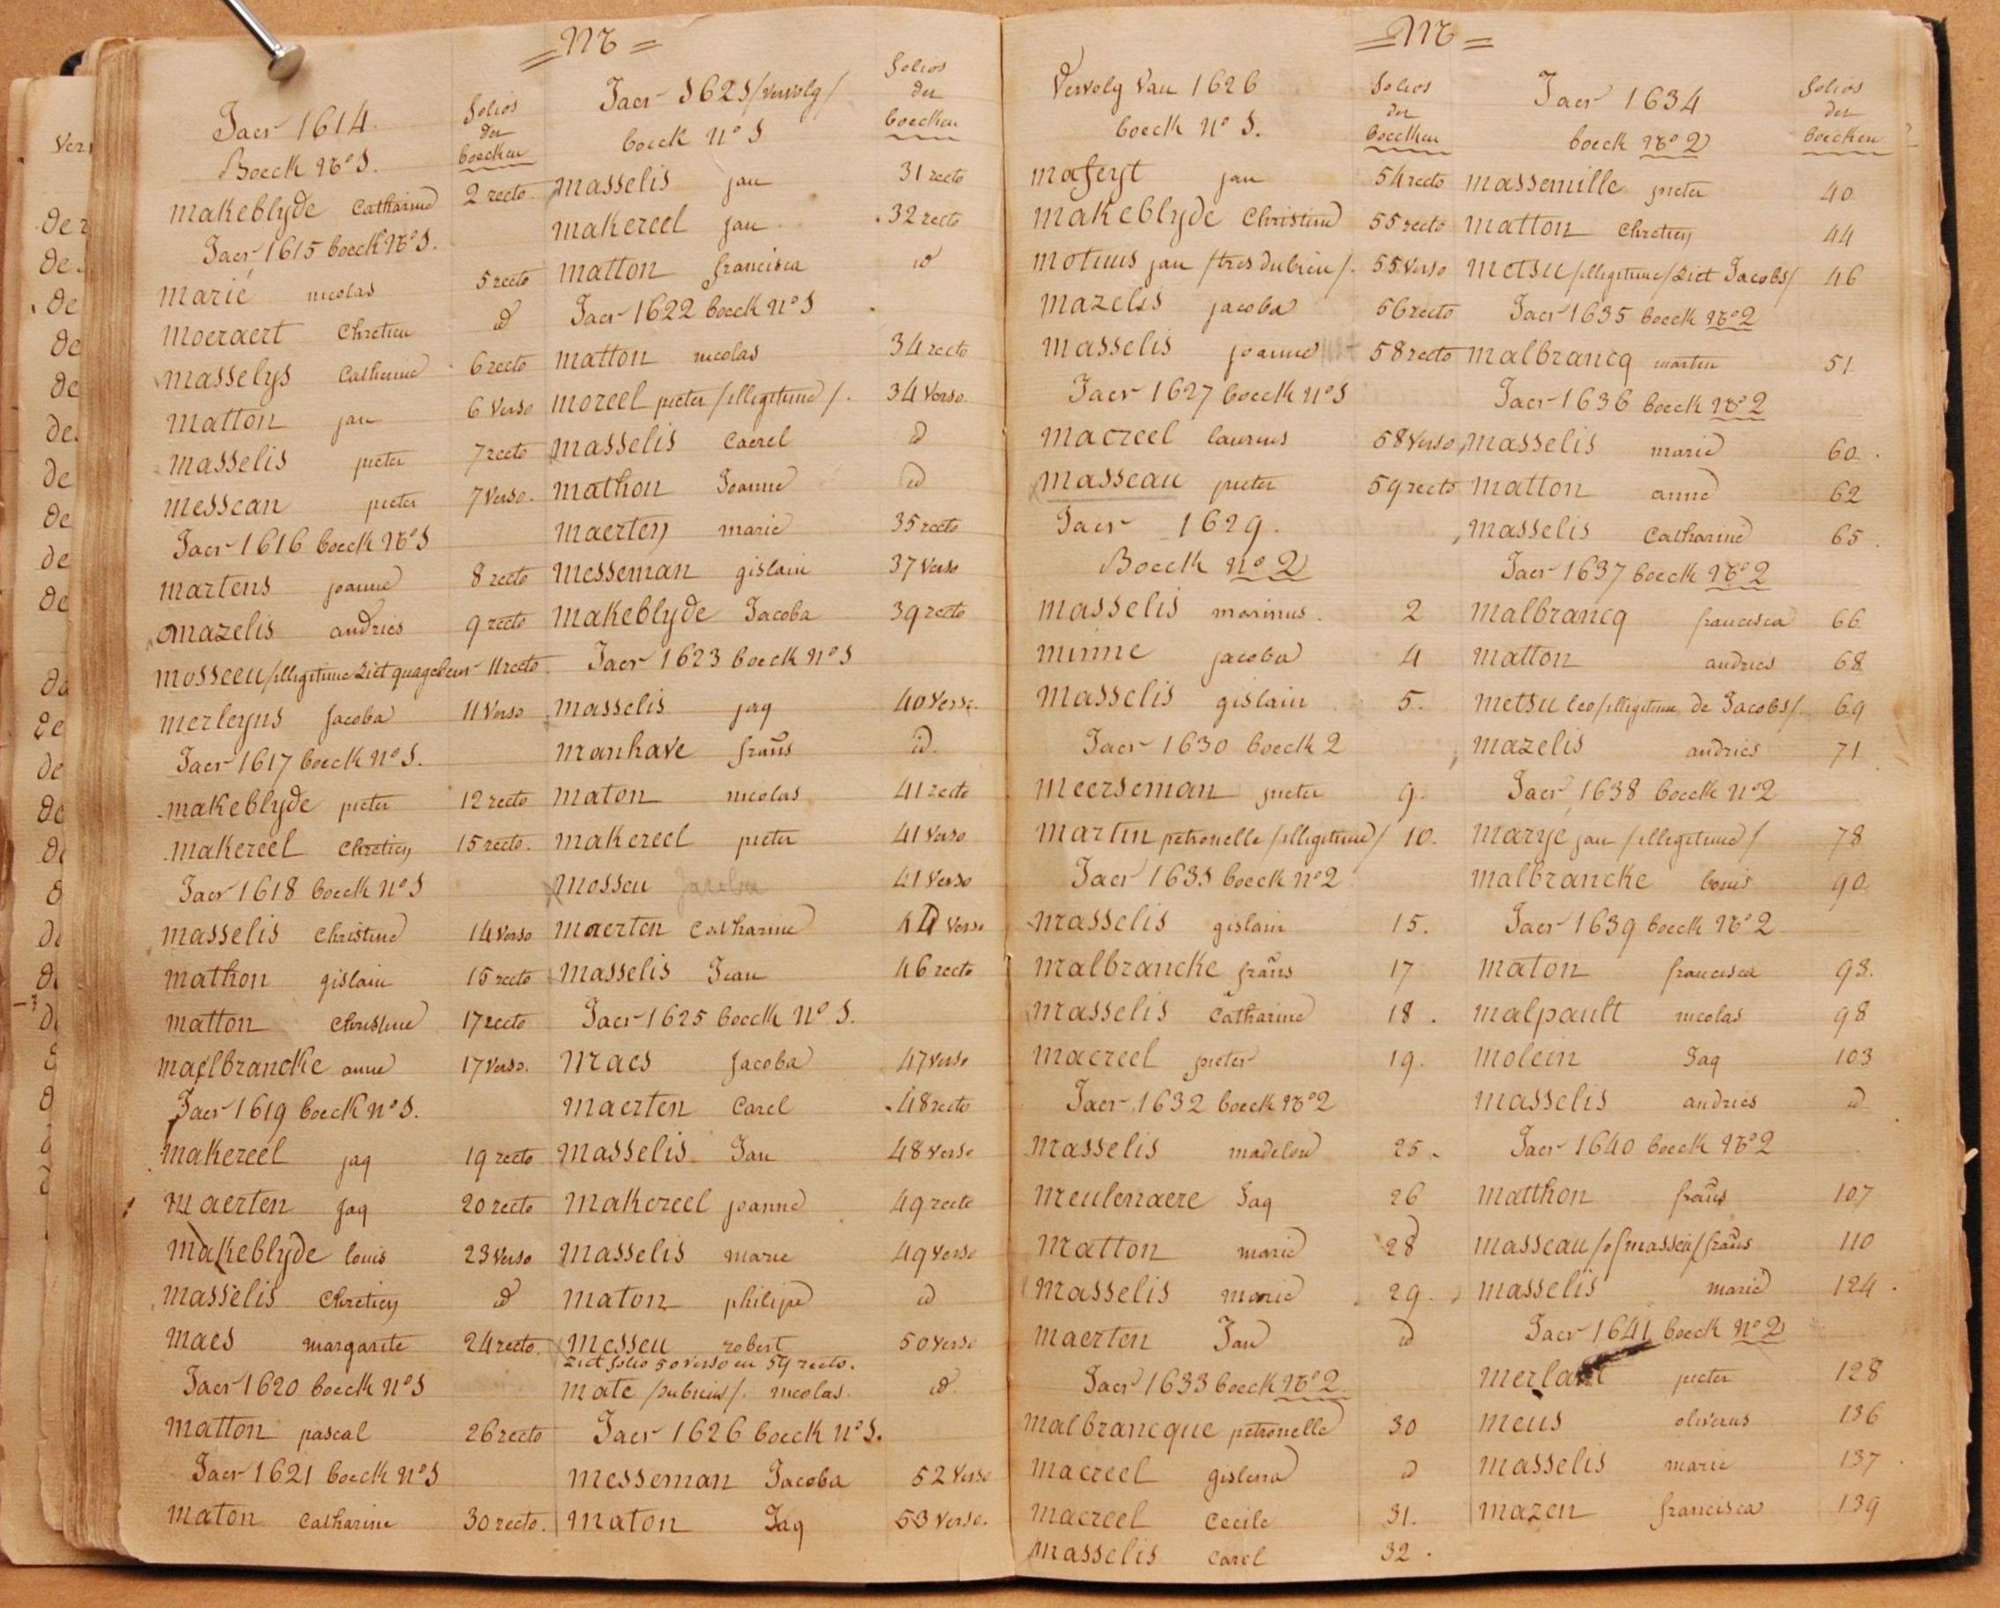 = M =
Jaer 1614
Boeck No 1.
Folios
der
boecken
makeblyde Catharine 2 recto
Jaer 1615 boeck No 1.
marié nicolas 5 recto
moeraert Chretien id
masselys Catherine 6 recto
matton jan 6 Verso
masselis pieter 7 recto
messean pieter 7 Verso.
Jaer 1616 boeck No 1
martens joanne 8 recto
mazelis andries 9 recto
mosseeu /illegitime Ziet quagebeur 11 recto
merleyns Jacoba 11 Verso
Jaer 1617 boeck No 1.
makeblyde pieter 12 recto
makereel Chretien 15 recto.
Jaer 1618 boeck No 1
masselis Christine 14 Verso
mathon gislain 15 recto
matton Christine 17 recto
maelbrancke anne 17 Verso.
Jaer 1619 boeck No 1.
makereel jaq 19 recto
maerten jaq 20 recto
makeblyde louis 23 Verso
masselis Chretien id
maes margarite 24 recto.
Jaer 1620 boeck No 1
matton pascal 26 recto
Jaer 1621 boeck No 1
maton Catharine 30 recto.
Jaer 1621 /vervolg/
boeck No 1
Folios
der
boecken
masselis jan 31 recto
makereel jan 32 recto
matton francisca id
Jaer 1622 boeck No 1
matton nicolas 34 recto
moreel pieter /illegitime/. 34 Verso.
masselis Caerel id
mathon Joanne id
maerten marie 35 recto
messeman gislain 37 Verso
makeblyde Jacoba 39 recto
Jaer 1623 boeck No 1
masselis jaq 40 Verso.
manhave frans id.
maton nicolas 41 recto
makereel pieter 41 Verso
mosseu 41 Verso
maerten Catharine 44 Verso
masselis Jean 46 recto
Jaer 1625 boeck No 1.
maes Jacoba 47 Verso
maerten Carel 48 recto
masselis Jan 48 Verso
makereel joanne 49 recto
masselis marie 49 Verso
maton philipe id
messeu robert 50 Verso
Ziet folio 50 verso en 59 recto.
mate /dubieus/. nicolas. id.
Jaer 1626 boeck No 1.
messeman Jacoba 52 Verso
maton Jaq 53 Verso.
= M =
Vervolg Van 1626
boeck No 1.
Folios
der
boecken
maseyt jan 54 recto
makeblyde Christine 55 recto
motuus jan /tres dubieu/. 55 Verso
mazelis jacoba 56 recto
masselis joanne 58 recto
Jaer 1627 boeck No 1
macreel laurens 58 Verso
masseau pieter 59 recto
Jaer 1629.
Boeck No 2
masselis marinus. 2
minne jacoba 4
masselis gislain 5.
Jaer 1630 boeck 2
meerseman pieter 9.
martin petronelle /illegitime/ 10.
Jaer 1631 boeck No 2
masselis gislain 15.
malbrancke frans 17
masselis Catharine 18.
macreel pieter 19.
Jaer 1632 boeck No 2
masselis madelon 25.
meulenaere Jaq 26
matton marie 28
masselis marie 29.
maerten Jan id
Jaer 1633 boeck No 2
malbrancque petronelle 30
macreel gislena id
macreel Cecile 31.
masselis Carel 32.
Jaer 1634
boeck No 2
Folios
der
boecken
massemille pieter 40
matton Chretien 44
metsu /illegitime/ Ziet Jacobs/ 46
Jaer 1635 boeck No 2
malbrancq martin 51
Jaer 1636 boeck No 2
masselis marie 60.
matton anne 62
masselis Catharine 65.
Jaer 1637 boeck No 2
malbrancq francisca 66
matton andries 68
metsu leo /illegitime de Jacobs/. 69
mazelis andries 71
Jaer 1638 boeck No 2
maryé jan /illegitime/ 78
malbrancke louis 90
Jaer 1639 boeck No 2
maton francisca 98.
malpault nicolas 98
molein Jaq 103
masselis andries id
Jaer 1640 boeck No 2
matthon frans 107
masseau /of masseu/ frans 110
masselis marie 124.
Jaer 1641 boeck No 2
pieter 128
meus oliverus 136
masselis marie 137.
mazen francisca 139